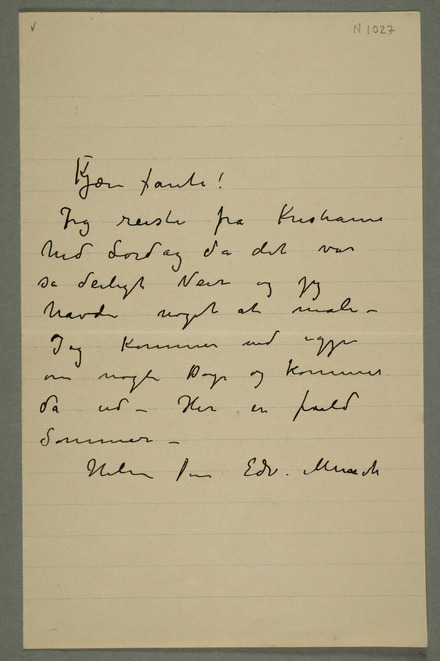 N 1027
Kjære tante!
Jeg reiste fra Kristiania
ned Lørdag da det var
så deiligt Veir og jeg
havde noget at male –
Jeg kommer ind igjen
om nogle Dage og kommer
da ud – Her er fuld
Sommer –
Hilsen Din Edv. Munch